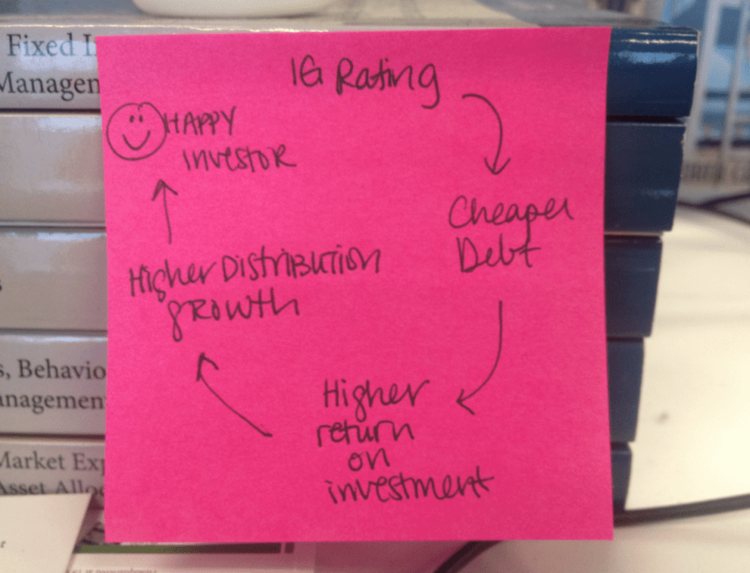 IG Rating
Cheaper
Debt
Higher
return
on
investment
Higher Distribution
growth
HAPPY
investor
Fixed
s, Behavio
Market
Asset